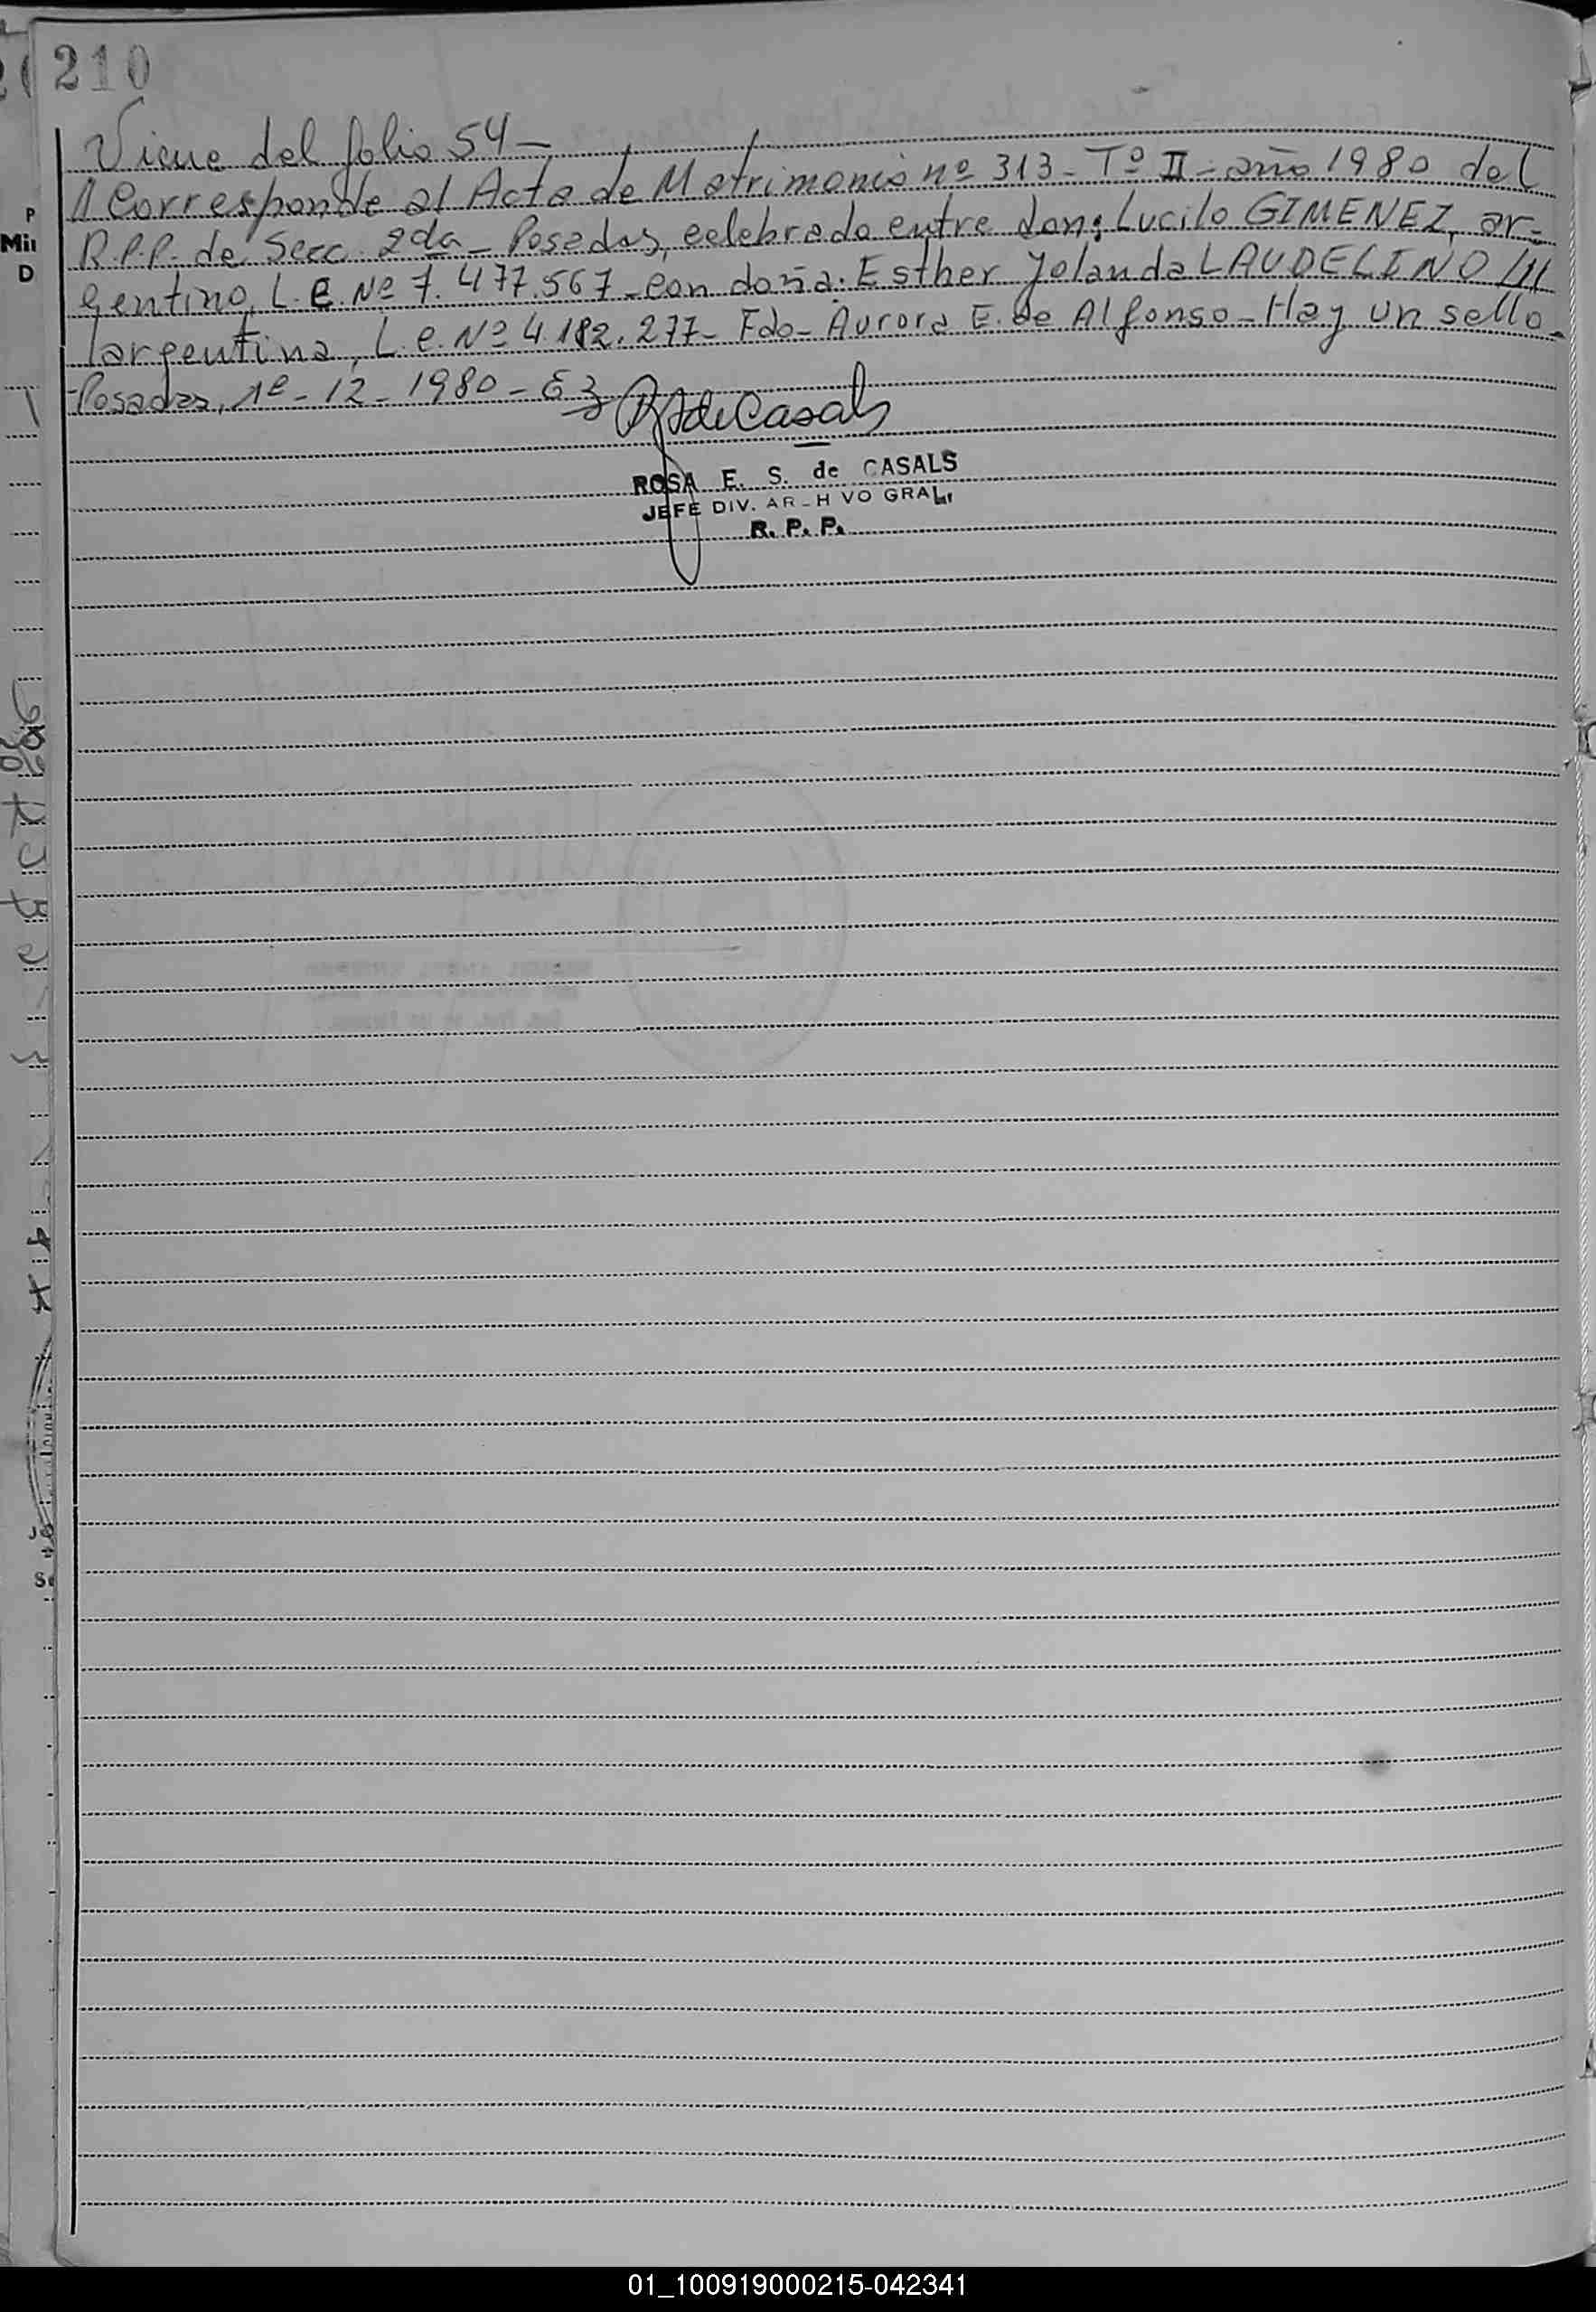 210
Viene del folio 54-
// Corresponde al Acta de Matrimonio nº 313- Tº II- año 1980 del
R.P.P. de Secc. 2da- Posadas, celebrado entre don: Lucilo GIMENEZ, ar-
gentino, L.E. Nº 7.477.567- con doña: Esther Yolanda LAUDELINO ///
/argentina, L.C. Nº 4.182.277- Fdo- Aurora E. de Alfonso- Hay un sello-
Posadas, 1º-12-1980-
RSdeCasals
ROSA E. S. de CASALS
JEFE DIV. AR-H VO GRAL.
R. P. P.
01_100919000215-042341